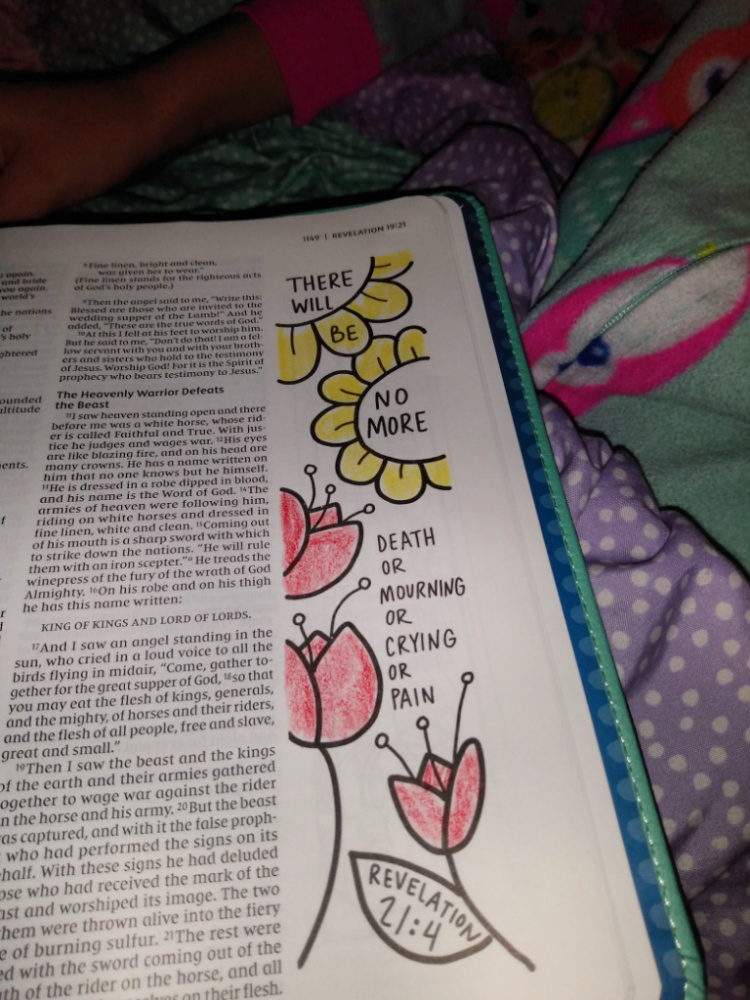 1149 | REVELATION 19:21
again.
and bride
you again.
world's
the nations
of
's holy
ghtered
ounded
ultitude
ents.
f
r
l
⁸Fine linen, bright and clean,
was given her to wear."
(Fine linen stands for the righteous acts
of God's holy people.)
⁹Then the angel said to me, "Write this:
Blessed are those who are invited to the
wedding supper of the Lamb!" And he
added, "These are the true words of God."
¹⁰At this I fell at his feet to worship him.
But he said to me, "Don't do that! I am a fel-
low servant with you and with your broth-
ers and sisters who hold to the testimony
of Jesus. Worship God! For it is the Spirit of
prophecy who bears testimony to Jesus."
The Heavenly Warrior Defeats
the Beast
¹¹I saw heaven standing open and there
before me was a white horse, whose rid-
er is called Faithful and True. With jus-
tice he judges and wages war. ¹²His eyes
are like blazing fire, and on his head are
many crowns. He has a name written on
him that no one knows but he himself.
¹³He is dressed in a robe dipped in blood,
and his name is the Word of God. ¹⁴The
armies of heaven were following him,
riding on white horses and dressed in
fine linen, white and clean. ¹⁵Coming out
of his mouth is a sharp sword with which
to strike down the nations. "He will rule
them with an iron scepter."ᵃ He treads the
winepress of the fury of the wrath of God
Almighty. ¹⁶On his robe and on his thigh
he has this name written:
KING OF KINGS AND LORD OF LORDS.
¹⁷And I saw an angel standing in the
sun, who cried in a loud voice to all the
birds flying in midair, "Come, gather to-
gether for the great supper of God, ¹⁸so that
you may eat the flesh of kings, generals,
and the mighty, of horses and their riders,
and the flesh of all people, free and slave,
great and small."
¹⁹Then I saw the beast and the kings
of the earth and their armies gathered
ogether to wage war against the rider
n the horse and his army. ²⁰But the beast
as captured, and with it the false proph-
who had performed the signs on its
ehalf. With these signs he had deluded
ose who had received the mark of the
ast and worshiped its image. The two
hem were thrown alive into the fiery
e of burning sulfur. ²¹The rest were
ed with the sword coming out of the
th of the rider on the horse, and all
on their flesh.
THERE
WILL
BE
NO
MORE
DEATH
OR
MOURNING
OR
CRYING
OR
PAIN
REVELATION
21:4